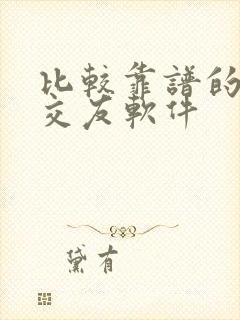 比較靠譜的
交友軟件
黛有